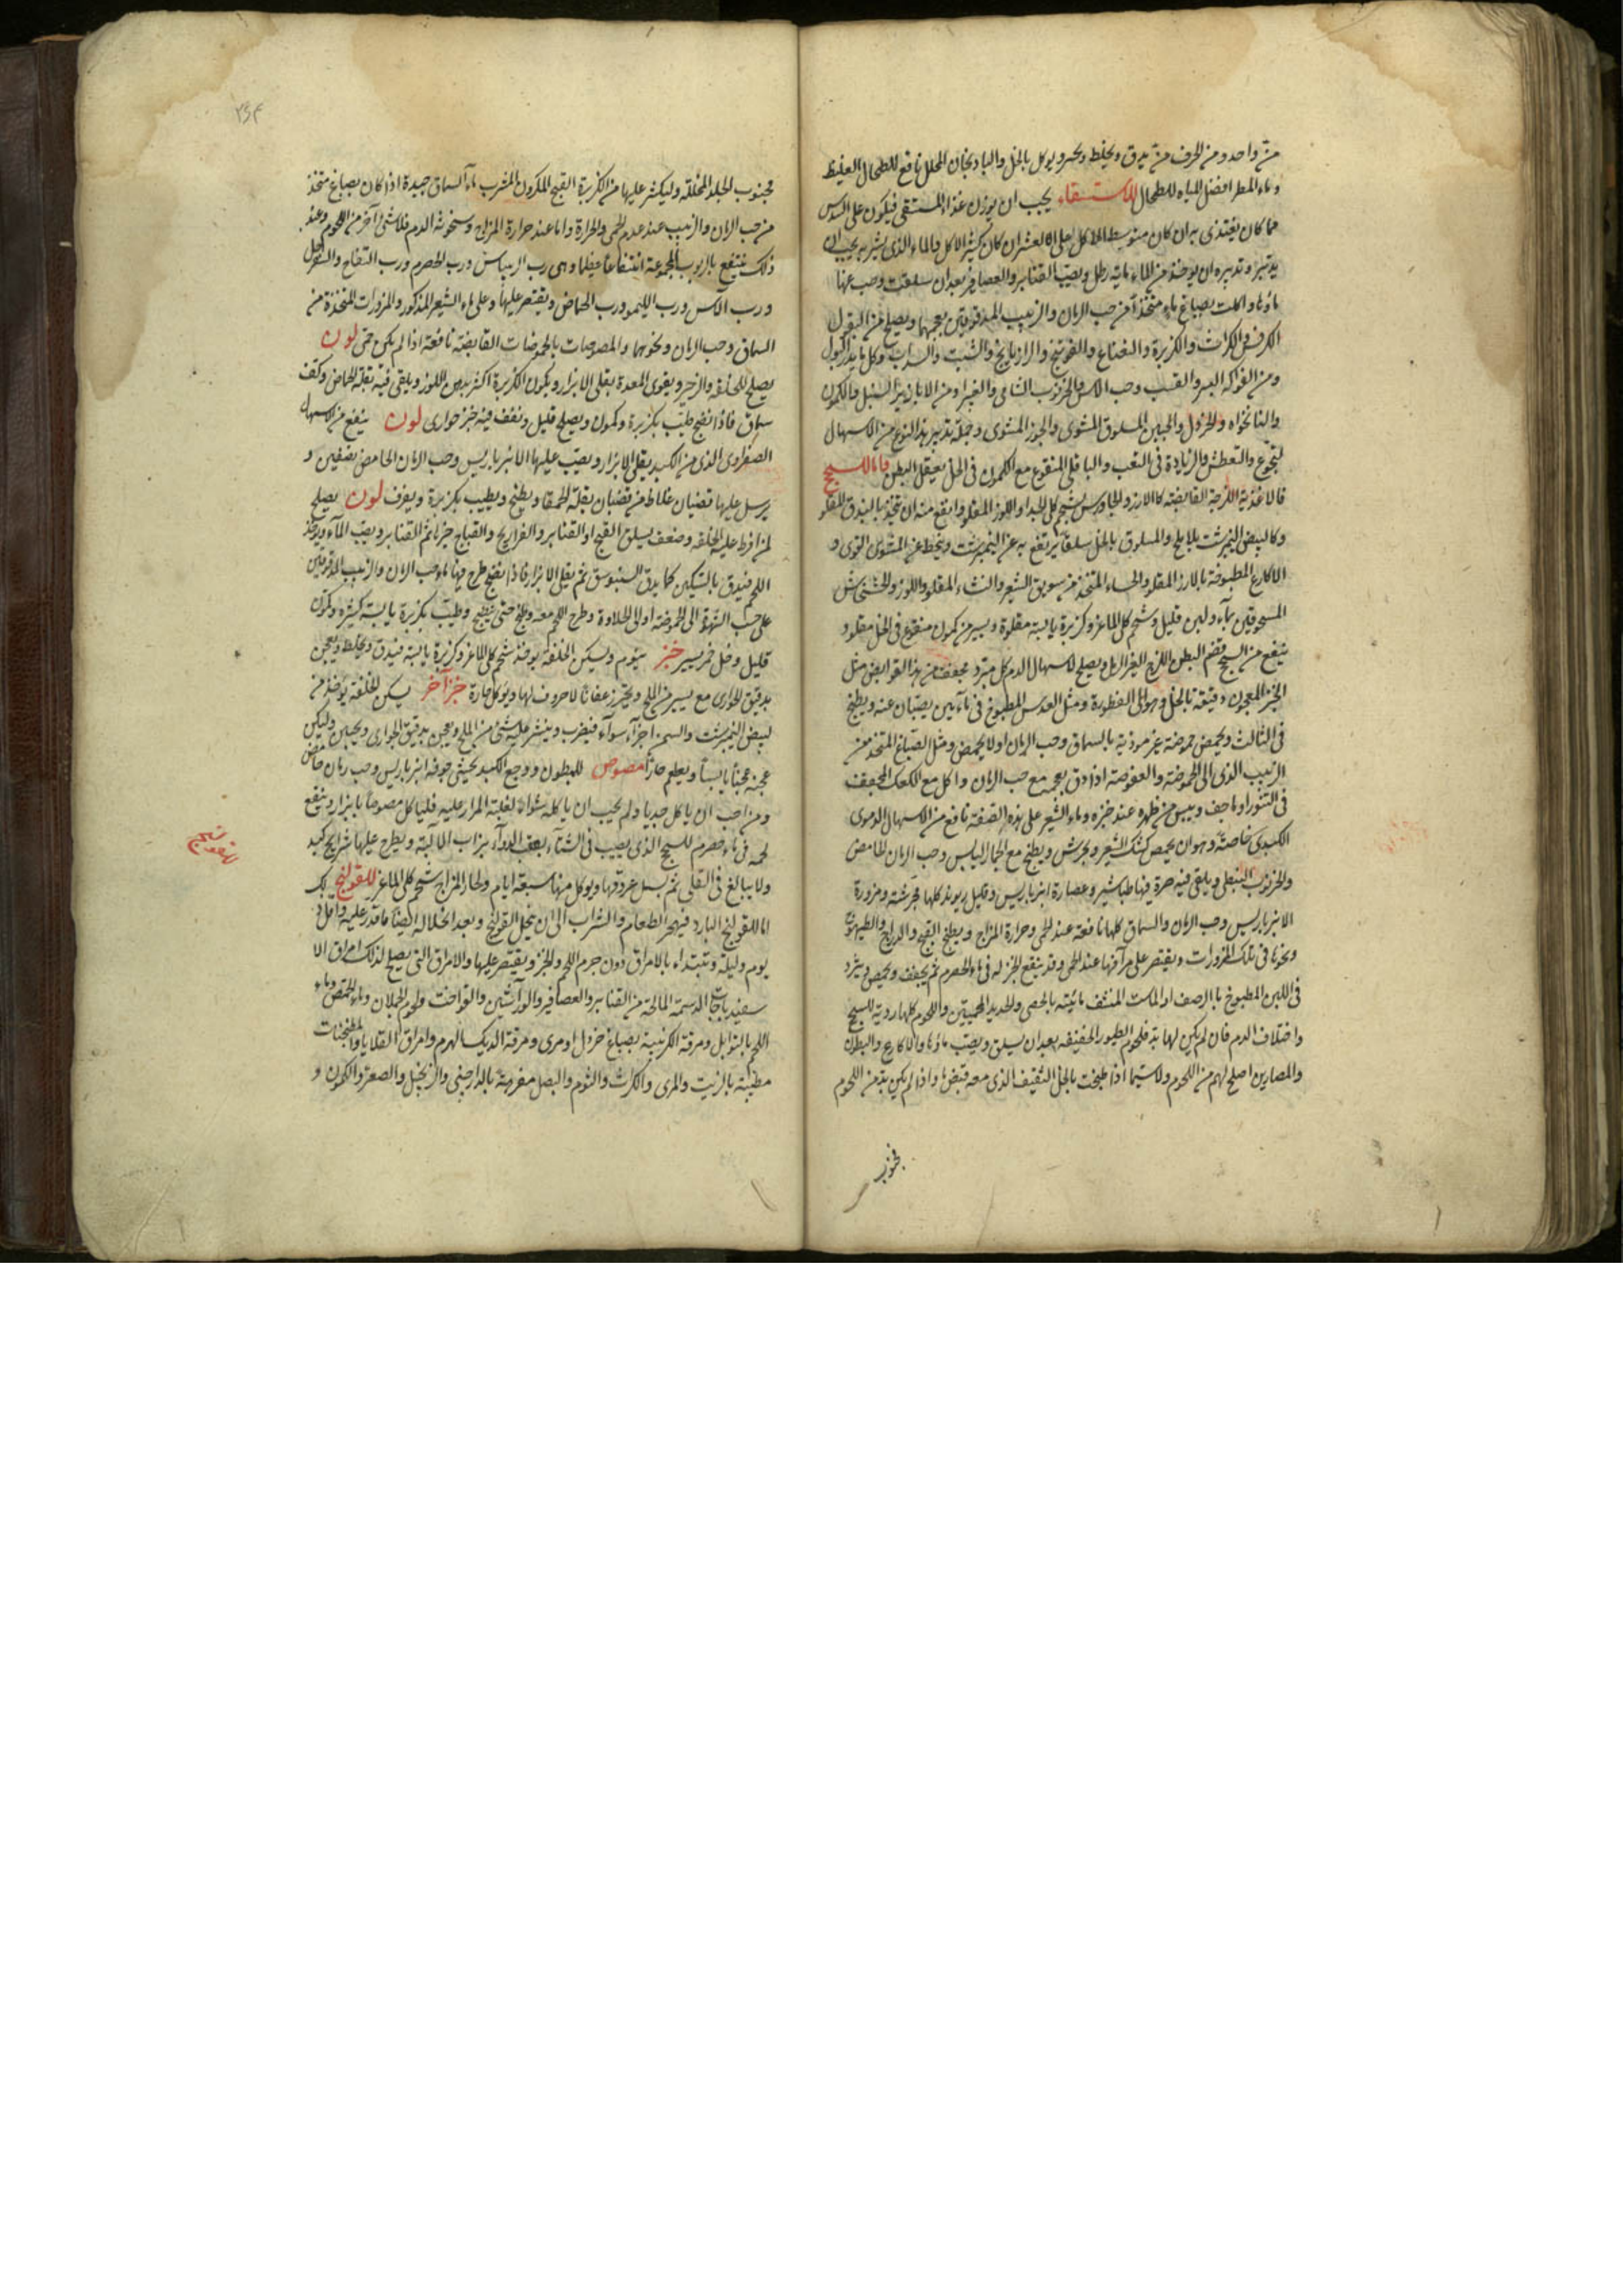 من واحد ومن الحرف من يدق ويخلط ويؤكل بالخل والباذنجان المخلل نافع للطحال الغليظ
وماء المطر افضل المياه للطحال للاستسقاء يجب ان يوزن غذاء المستسقى فيكون على السدس
مما كان يغتذى به ان كان متوسط الاكل وعلى العشر ان كان كثير الاكل والماء الذى يشربه يجب ان
يدبر وتدبيره ان يوخذ من الماء مايه رطل ويصب القنابر والعصافير بعد ان سلقت وصب عنها
ماؤها واكلت بصباغ ماء متخذ من حب الرمان والزبيب المدقوقين بعجمهما ويصلح من البقول
الكرفس والكراث والكزبرة والنعناع والفوتنج والرازيانج والشبت والسداب وكل ما يدر البول
ومن الفواكه البسر والقسب وحب الاس والخرنوب الشامى والغبيرا ومن الابازير السنبل والكمون
والنانخواه والخردل والجبن المسلوق المشوى والجوز المشوى وجملة تدبير هذا النوع من الاسهال
التجوع والتعطش والزيادة فى التعب والباقلى المنقوع مع الكمون فى الخل يعقل البطن فاما للسحج
فالاغذية اللزجة القابضة كالارز والجاورس بشحم كلى الجدا واللوز المقلو وانفع منه ان يتخذ بالبندق المقلو
وكالبيض النيمرشت بلا ملح والمسلوق بالخل سلقا يرتفع به عن النيمرشت وينحط عن المشوى القوى و
الاكارع المطبوخة بالارز المقلو والحساء المتخذ من سويق الشعير والنشاء المقلو واللوز والخشخاش
المسحوقين بماء ولبن قليل وشحم كلى الماعز وكزبرة يابسة مقلوة ويسير من كمون منقوع فى الخل مقلو و
ينفع من السحج فضم البطن اللزج الغير ويصلح لاسهال الدم كل مبرد مجفف من هذا القوابض مثل
الخبز المعجون دقيقه بالخل وهو الى الفطورة ومثل العدس المطبوخ فى مائين يصبان عنه ويطبخ
فى الثالث ويحمض حموضة غير موذية بالسماق وحب الرمان اولا يحمض ومثل الصباغ المتخذ من
الزبيب الذى الى الحموضة والعفوصة اذا دق بعجمه مع حب الرمان واكل مع الكعك المجفف
فى التنور او ما جف ويبس من ظهره عند خبزه وماء الشعير على هذه الصفة نافع من الاسهال الدموى
الكبدى خاصة وهو ان يحمص كشك الشعير ويجرش ويطبخ مع اليابس وحب الرمان الحامض
والخرنوب النبطى ويلقى فيه صرة فيها طباشير وعصارة انبرباريس وقليل ريوند كلها مجرشة ومزورة
الانبرباريس وحب الرمان والسماق كلها نافعة عند الحمى وحرارة المزاج ويطبخ القبج والدراج والطيهوج
ونحوها فى تلك المزورات ويقتصر على مرقها عند الحمى وقد ينقع الخبز له فى ماء الحصرم ثم يجفف ويحمص ويثرد
فى اللبن المطبوخ بالرصف او الماست المنشف مائيته بالحصى والحديد المحميين واللحوم كلها ردية للسحج
واختلاف الدم فان لم يكن لها بد فلحوم الطيور الخفيفه بعد ان يسلق ويصب ماؤها والاكارع والبطون
والمصارين اصلح لهم من اللحوم ولا سيما اذا طبخت بالخل الثقيف الذى معه قبض ما واذا لم يكن بد من اللحوم
فجنوب
فجنوب الجدا المخللة وليكثر عليها من الكزبرة القبج المشرب ماء السماق جيدة اذا كان بصباغ متخذ
من حب الرمان والزبيب عند عدم الحمى والحرارة واما عند حرارة المزاج وسخونة الدم فلا شئ اخر من اللحوم وعند
ذلك ينتفع بالربوب المجموعة انتفاعا عظيما وهى رب الريباس ورب الحصرم ورب التفاح والسفرجل
ورب الآس ورب الليمو ورب الحماض ويقتصر عليها وعلى ماء الشعير المذكور والمزورات المتخذة من
السماق وحب الرمان ونحوهما والمصوصات بالحموضات القابضة نافعة اذا لم يكن حمى لون
يصلح للخلفة والزحير ويقوى المعدة يقلى الابزار وبكمون الكزبرة اكثر بدهن اللوز ويلقى فيه بقلة الحماض وكف
سماق فاذا نضج طيب بكزبرة وكمون ويصلح قليل ونفف فيه خبز حوارى لون ينفع من الاسهال
الصفراوى الذى من الكبد يقلى الابزار ويصب عليها الانبرباريس وحب الرمان الحامض بضفين و
يرسل عليها قضبان غلاظ من قضبان بقلة الحمقا ويطبخ ويطيب بكزبرة ويغرف لون يصلح
لمن افرط عليه الخلفه وضعف يسلق القبج او القنابر والفراريج والقباج خيرها ثم القنابر ويصب الماء ويوخذ
اللحم فيدق بالسكين كما يدق السنبوسق ثم يقلى الابزار فاذا نضج طرح فيها ماء حب الرمان والزبيب المدقوقين
على حسب الشهوة الى الحموضة او الى الحلاوة وطرح اللحم معه وطبخ حتى ينطبخ وطيب بكزبرة يابسة كثيرة وكمون
قليل وخل خمر يسير خبز ينوم ويسكن الخلفة يوخذ شحم كلى الماعز وكزبرة يابسة فيدق ويخلط ويعجن
بدقيق الحوارى مع يسير من الملح ويخبز رغفانا لا حروف لها ويؤكل حارة خبز آخر يسكن الخلفة يؤخذ من
البيض النيمرشت والسمن اجزاء سواء فيضرب وينثر عليه شئ من الملح ويعجن بدقيق الحوارى ويخبز وليكن
عجنه عجنا يابسا ويطعم حارا مصوص للمبطون ووجع الكبد يحشى جوفه انبرباريس وحب رمان حامض
ومن احب ان ياكل جديا ولم يجب ان ياكله شواء لغلبة المرار عليه فلياكل مصوصا بابزار وينفع
لحمه فى ماء حصرم للسحج الذى يصيب فى الشتاء بعقب الدوآء يزاب الالية ويطرح عليها شرايح كبد
ولا يبالغ فى القلى ثم يسل عروقها ويوكل منها سبعة ايام ولحار المزاج شحم كلى الماعز للقولنج
اما للقولنج البارد فيهجر الطعام والشراب الى ان ينحل القولنج وبعد انحلاله ايضا ما قدر عليه واقل
يوم وليلة وتبتداء بالامراق دون جرم اللحم والخبز ويقتصر عليها والامراق التى يصلح لذلك امراق الا
سفيدباجات الدسمة المالحة من القنابر والعصافير والورآشين والفواخت ولحوم الحملان وماء الحمص وماء
اللحم بالتوابل ومرقة الكرنبية بصباغ خردل او مرى ومرقة الديك الهرم وامراق القلايا والمطجنات
مطيبة بالزيت والمرى والكراث والثوم والبصل مفوهة بالدارصنى والزنجبيل والصعتر والكمون و